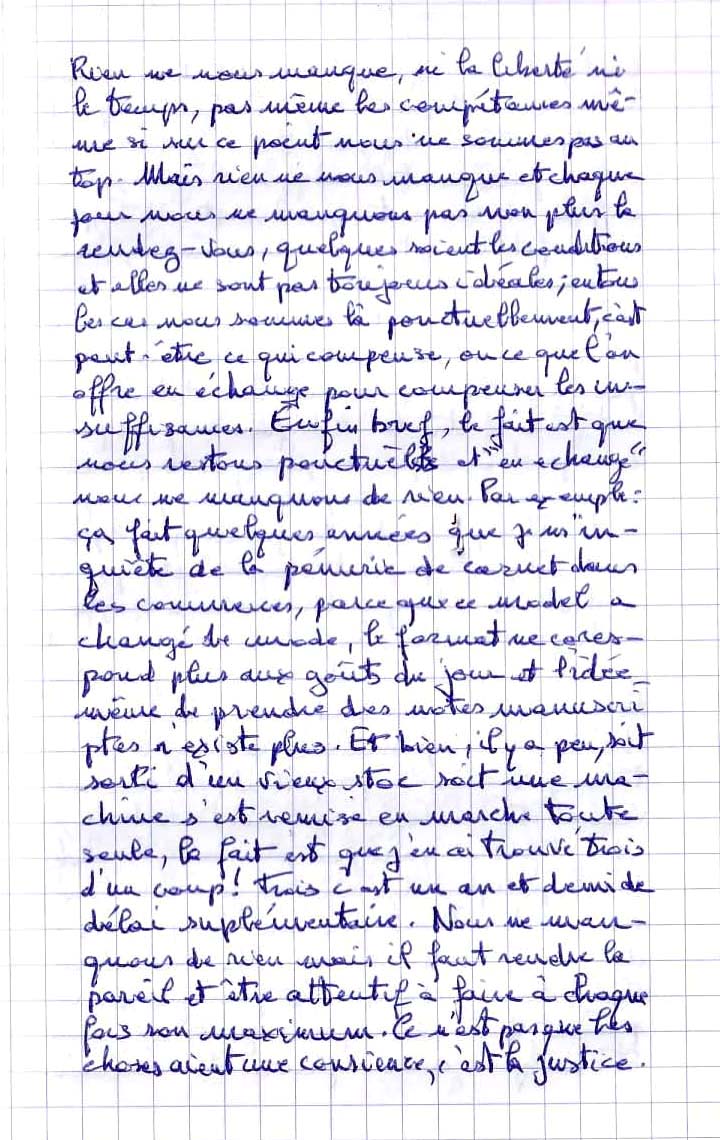 Rien ne nous manque, ni la liberté ni
le temps, pas même les compétances mê-
me si sur ce point nous ne sommes pas au
top. Mais rien ne nous manque et chaque
jour nous ne manquons pas non plus le
rendez-vous, quelques soient les conditions
et elles ne sont pas toujours idéales; en tous
les cas nous sommes là ponctuellement, c'est
peut-être ce qui compense, ou ce que l'on
offre en échange pour compenser les in-
suffisances. Enfin bref, le fait est que
nous restons ponctuels et "en échange"
nous ne manquons de rien. Par exemple:
ça fait quelques années que je m'in-
quiète de la pénurie de carnet dans
les commerces, parce que ce model a
changé de mode, le format ne cores-
pond plus aux goûts du jour et l'idée
même de prendre des notes manuscri
ptes n'existe plus. Et bien, il y a peu, soit
sorti d'un vieux stoc soit une ma-
chine s'est remise en marche toute
seule, le fait est que j'en ai trouvé trois
d'un coup! trois c'est un an et demi de
délai suplémentaire. Nous ne man-
quons de rien mais il faut rendre la
pareil et être attentif à faire à chaque
fois son maximum. Ce n'est pas que les
choses aient une consience, c'est la justice.